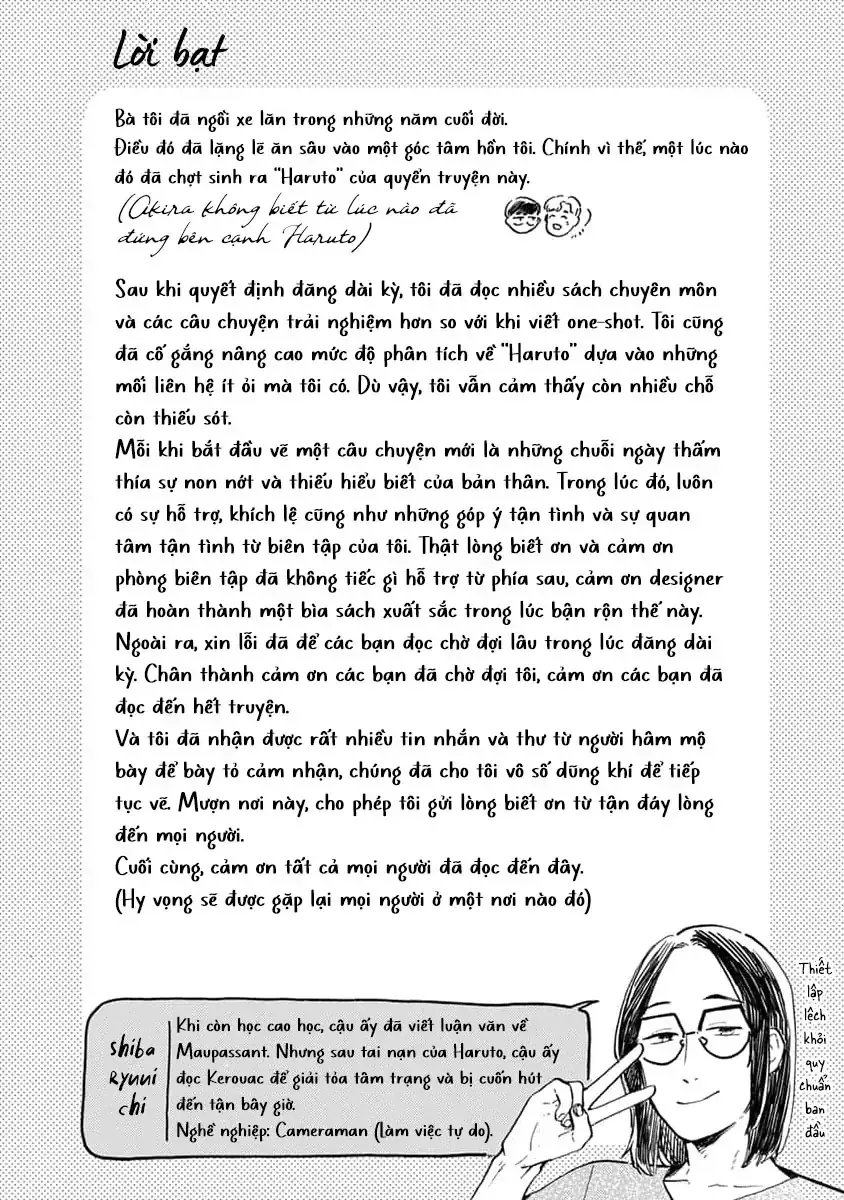 Lời bạt
Bà tôi đã ngồi xe lăn trong những năm cuối đời.
Điều đó đã lặng lẽ ăn sâu vào một góc tâm hồn tôi. Chính vì thế, một lúc nào
đó đã chợt sinh ra "Haruto" của quyển truyện này.
(Akira không biết từ lúc nào đã
đứng bên cạnh Haruto)
Sau khi quyết định đăng dài kỳ, tôi đã đọc nhiều sách chuyên môn
và các câu chuyện trải nghiệm hơn so với khi viết one-shot. Tôi cũng
đã cố gắng nâng cao mức độ phân tích về "Haruto" dựa vào những
mối liên hệ ít ỏi mà tôi có. Dù vậy, tôi vẫn cảm thấy còn nhiều chỗ
còn thiếu sót.
Mỗi khi bắt đầu vẽ một câu chuyện mới là những chuỗi ngày thấm
thía sự non nớt và thiếu hiểu biết của bản thân. Trong lúc đó, luôn
có sự hỗ trợ, khích lệ cũng như những góp ý tận tình và sự quan
tâm tận tình từ biên tập của tôi. Thật lòng biết ơn và cảm ơn
phòng biên tập đã không tiếc gì hỗ trợ từ phía sau, cảm ơn designer
đã hoàn thành một bìa sách xuất sắc trong lúc bận rộn thế này.
Ngoài ra, xin lỗi đã để các bạn đọc chờ đợi lâu trong lúc đăng dài
kỳ. Chân thành cảm ơn các bạn đã chờ đợi tôi, cảm ơn các bạn đã
đọc đến hết truyện.
Và tôi đã nhận được rất nhiều tin nhắn và thư từ người hâm mộ
bày để bày tỏ cảm nhận, chúng đã cho tôi vô số dũng khí để tiếp
tục vẽ. Mượn nơi này, cho phép tôi gửi lòng biết ơn từ tận đáy lòng
đến mọi người.
Cuối cùng, cảm ơn tất cả mọi người đã đọc đến đây.
(Hy vọng sẽ được gặp lại mọi người ở một nơi nào đó)
shiba
Ryuui
chi
Khi còn học cao học, cậu ấy đã viết luận văn về
Maupassant. Nhưng sau tai nạn của Haruto, cậu ấy
đọc Kerouac để giải tỏa tâm trạng và bị cuốn hút
đến tận bây giờ.
Nghề nghiệp: Cameraman (làm việc tự do).
Thiết
lập
lệch
khỏi
quy
chuẩn
ban
đầu